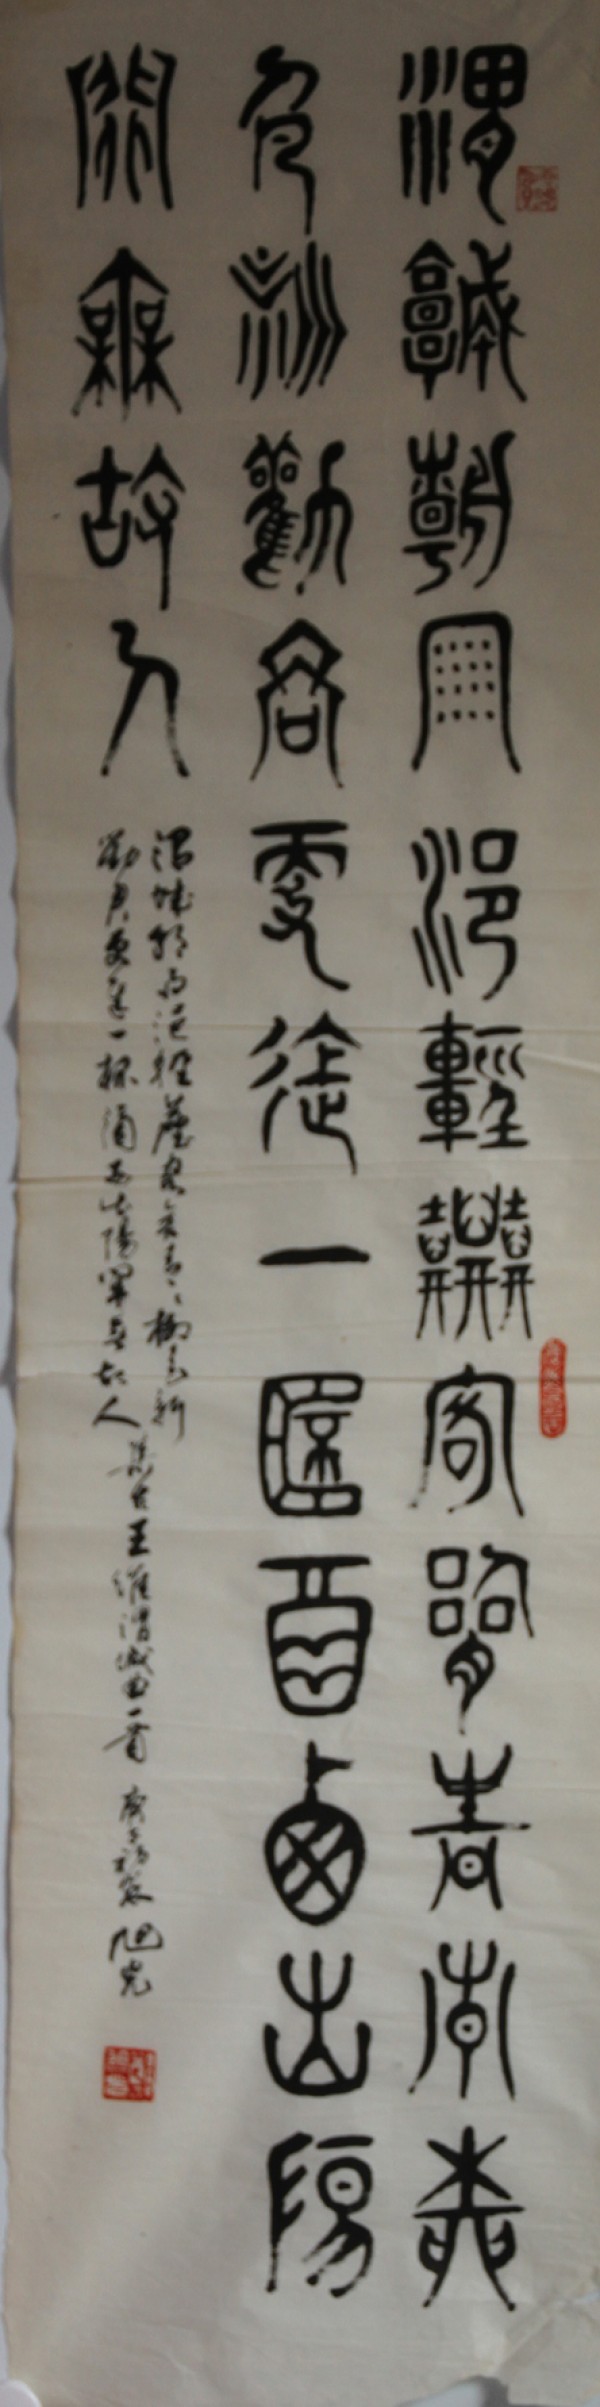 渭城朝雨浥輕塵客舍青青柳
色新勸君更進一杯酒西出陽
關無故人
渭城朝雨浥輕塵客舍青〻柳色新
勸君更進一杯酒西出陽關無故人 集古王維渭城曲一首 庚子 旭光